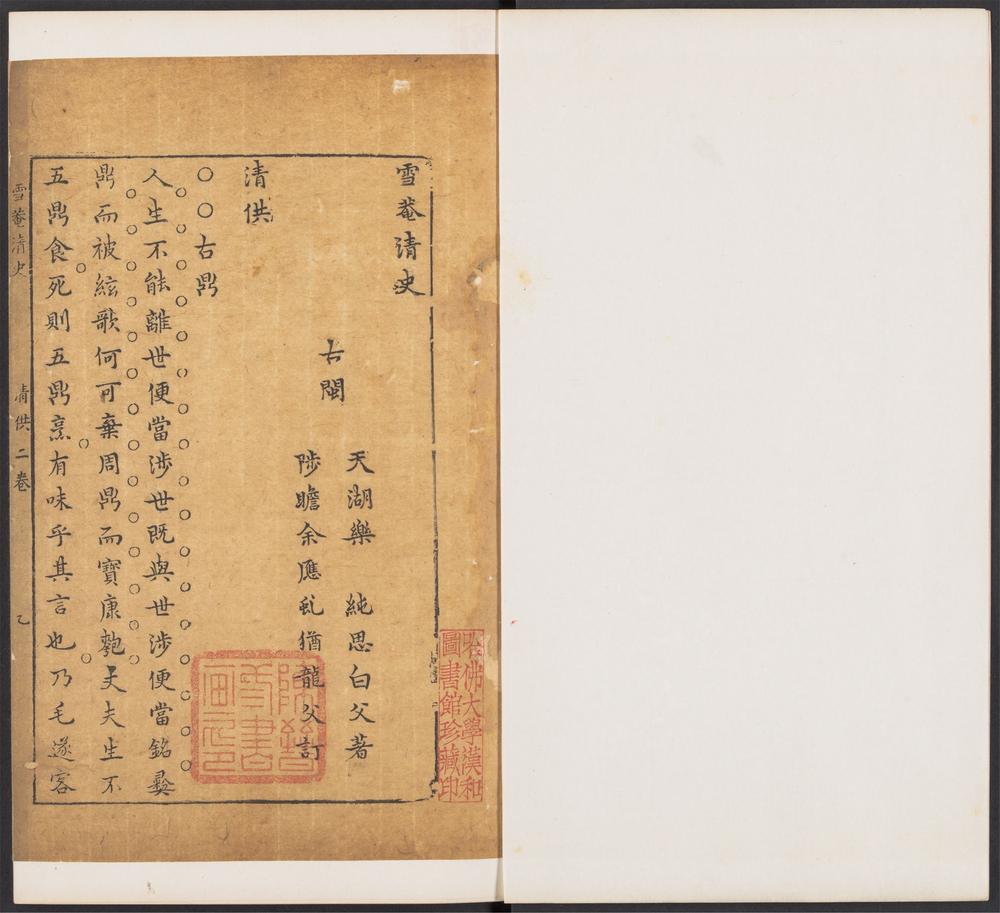 雪菴清史
古閩
天湖樂　純思白父著
陟瞻余應虬猶龍父訂
清供
○○古鼎
人生不能離世便當涉世既與世涉便當銘彜
鼎而被絃歌何可棄周鼎而寶康瓠丈夫生不
五鼎食死則五鼎烹有味乎其言也乃毛遂客
雪菴清史　清供二卷　乙
哈佛大學漢和
圖書館珍藏印